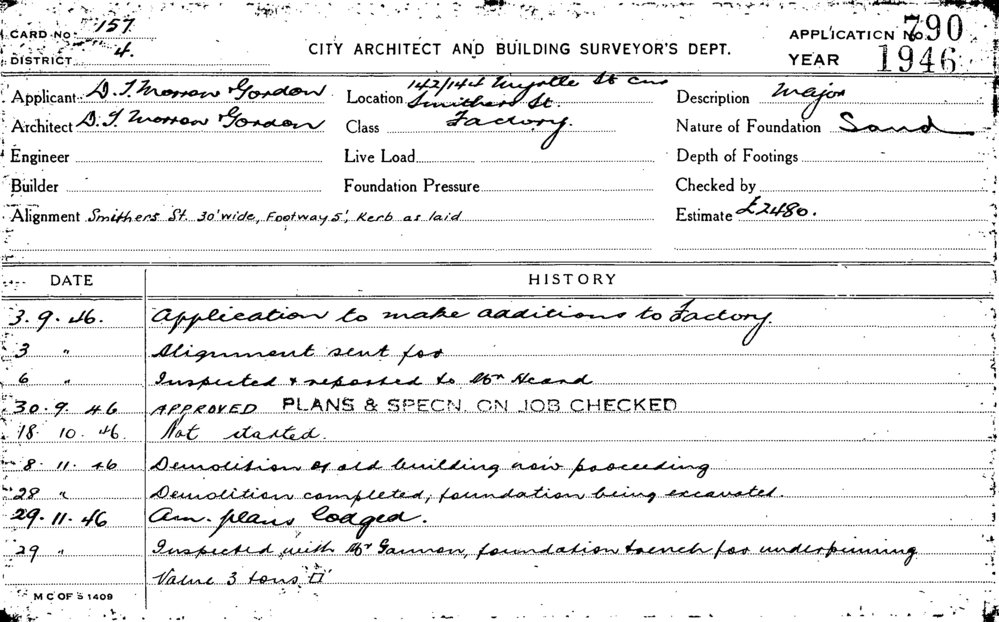 CARD No. 157
DISTRICT 4.
CITY ARCHITECT AND BUILDING SURVEYOR'S DEPT.
APPLICATION No. 790
YEAR 1946
Applicant D. T. Morrow & Gordon
Location 142/144 Myrtle St cnr
Smithers St.
Description Major
Architect D. T. Morrow & Gordon
Class Factory.
Nature of Foundation Sand
Engineer
Live Load
Depth of Footings
Builder
Foundation Pressure
Checked by
Alignment Smithers St. 30' wide, Footway 5', Kerb as laid
Estimate £2480.
DATE HISTORY
3. 9. 46. Application to make additions to Factory.
3 " Alignment sent for
6 " Inspected & reported to Mr Heard
30. 9. 46 APPROVED PLANS & SPECN. ON JOB CHECKED
18. 10. 46. Not started.
8. 11. 46 Demolition of old building now proceeding
28 " Demolition completed, foundation being excavated.
29. 11. 46 Am. plans lodged.
29 " Inspected with Mr Gannon, foundation trench for underpinning
Value 3 tons □'
M C OF S 1409